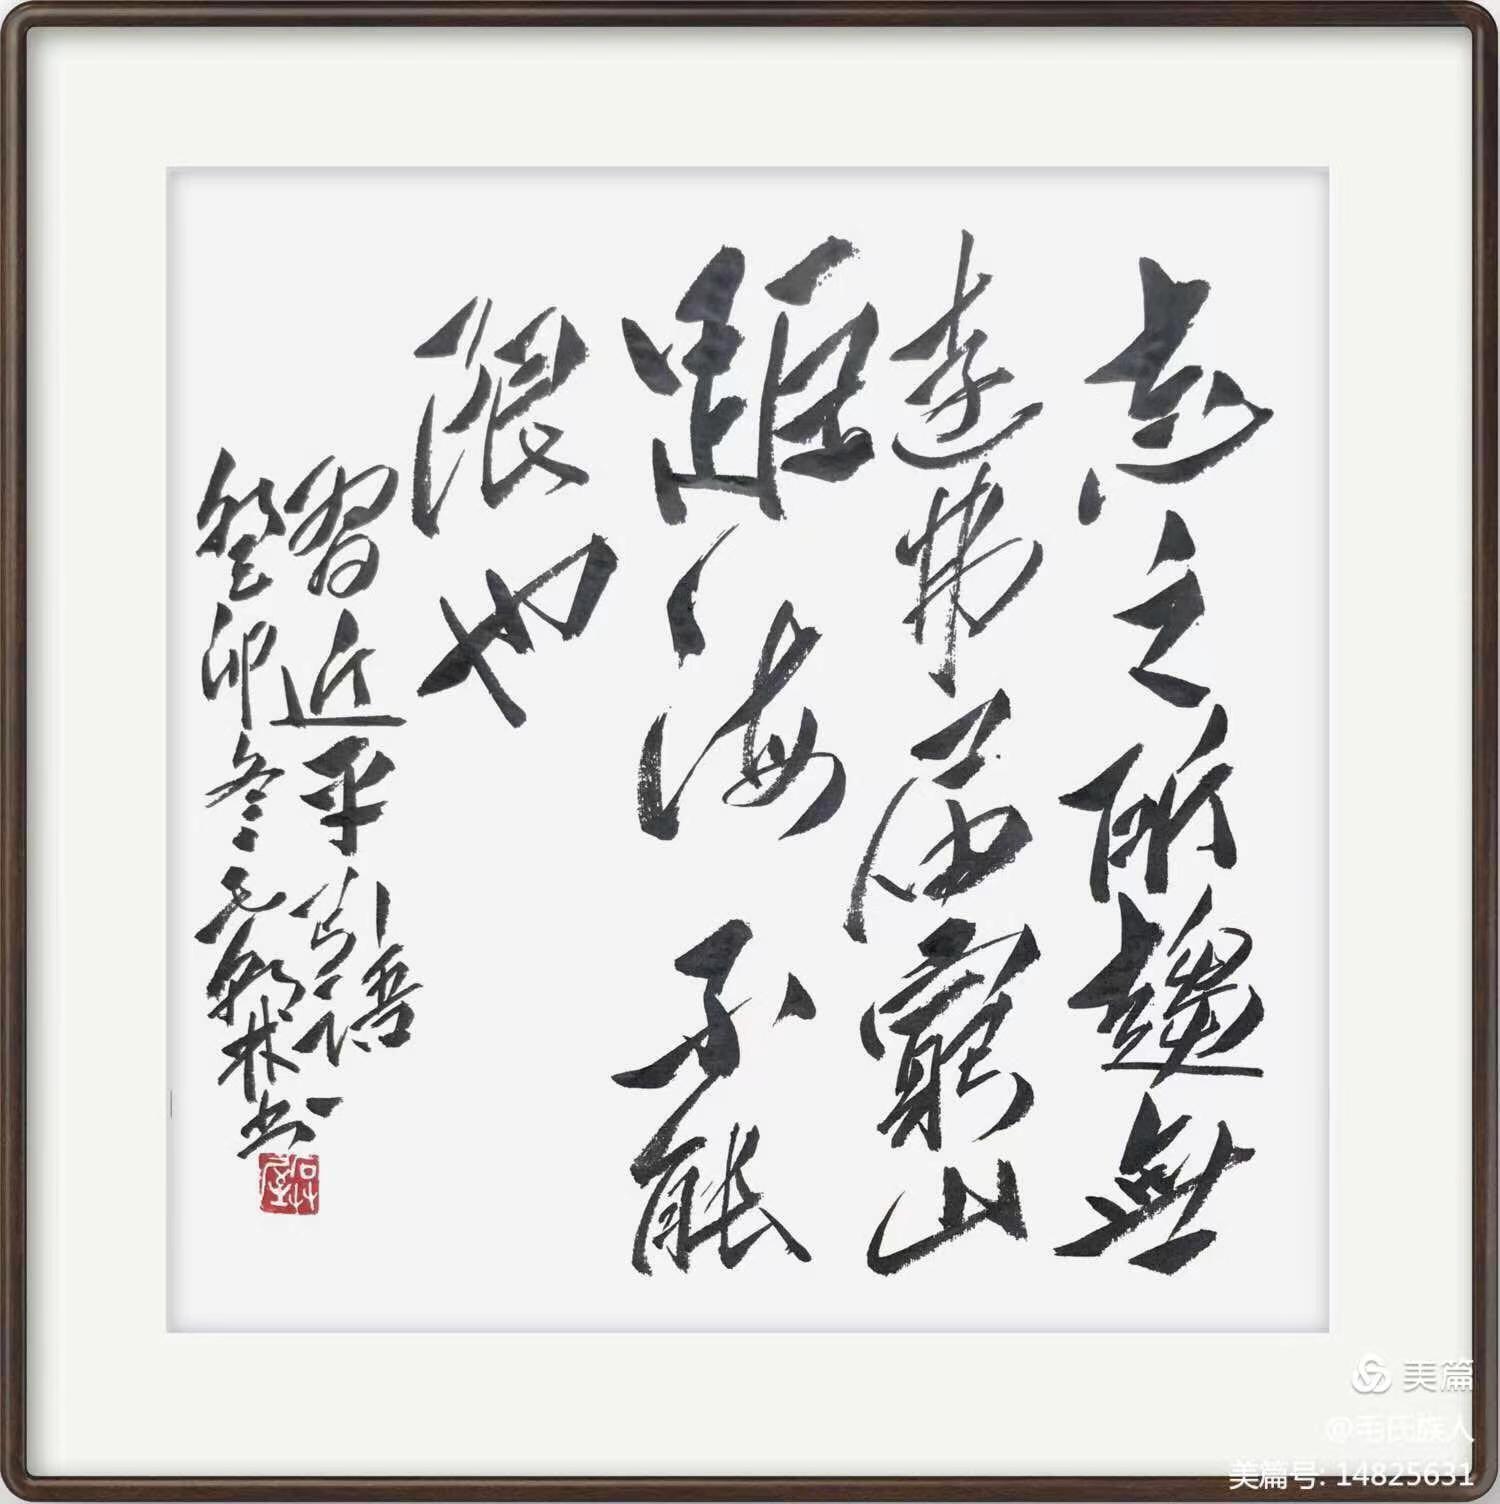 志之所趨無
遠弗届窮山
距海不能
限也
習近平引語
癸卯冬毛林书
美篇
@毛氏族人
美篇号: 14825631